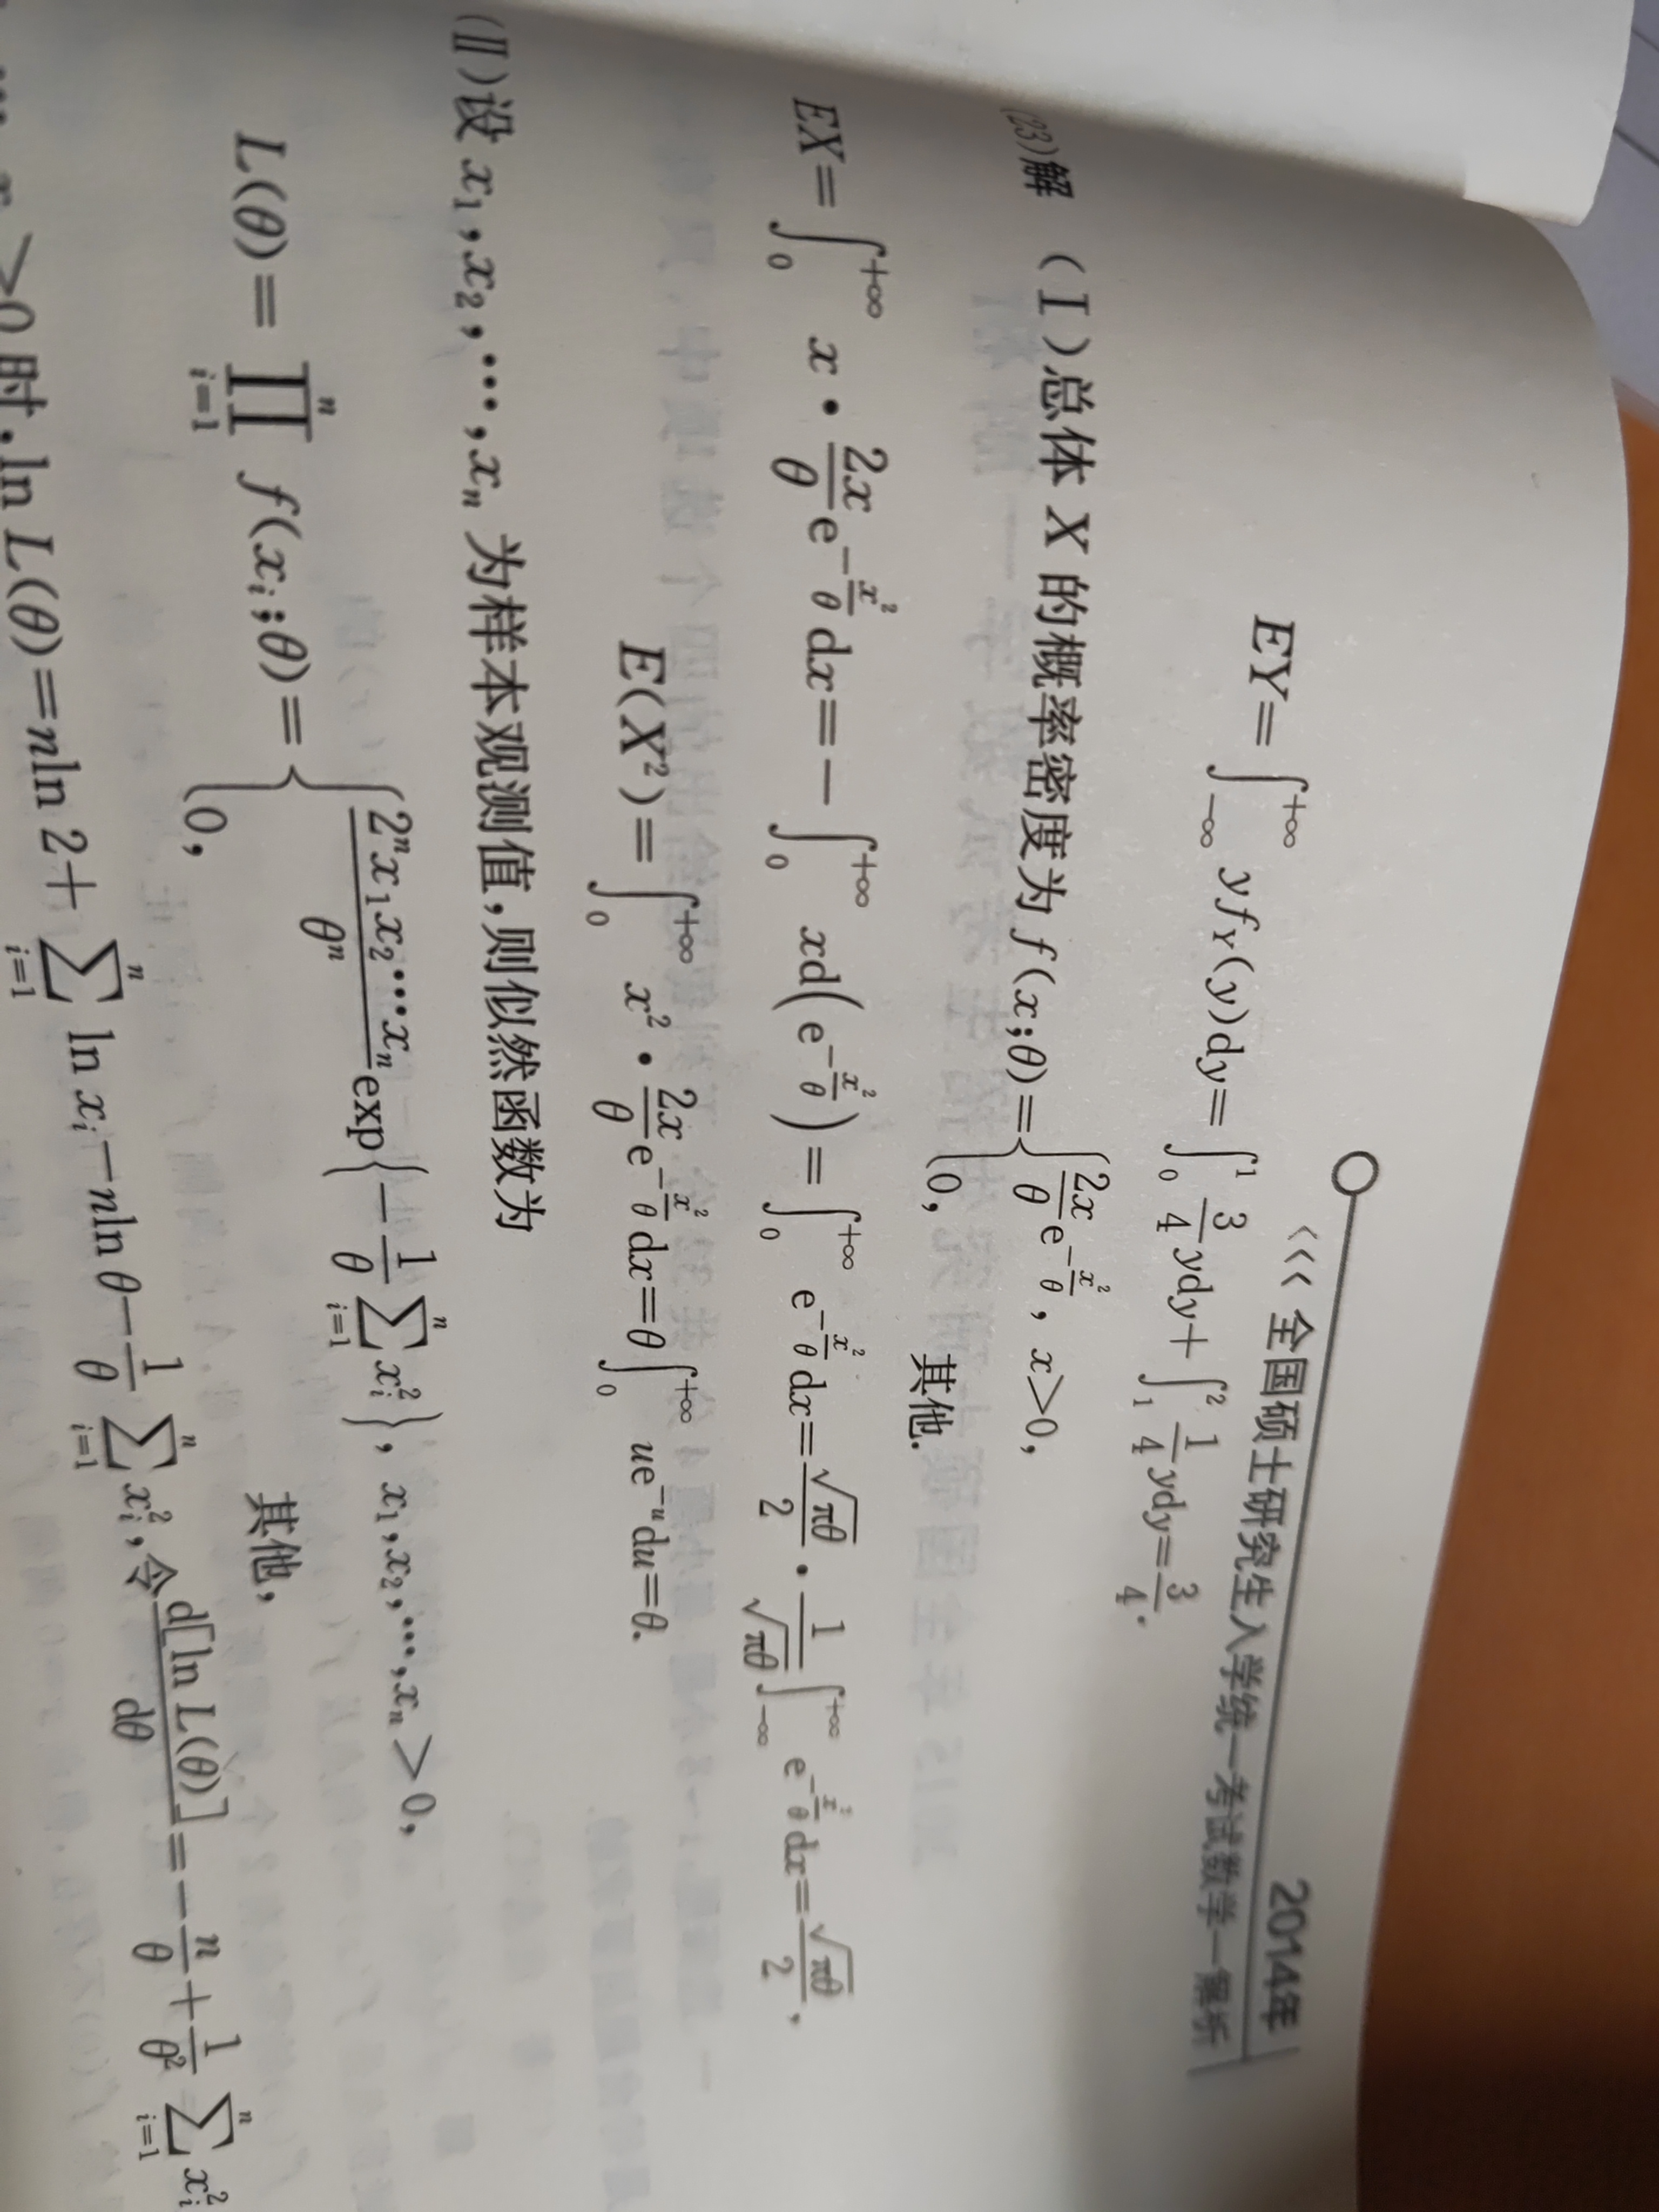 2014年
<<< 全国硕士研究生入学统一考试数学一解析
EY=∫_{-∞}^{+∞} yf_Y(y)dy=∫_0^1 \frac{3}{4}ydy+∫_1^2 \frac{1}{4}ydy=\frac{3}{4}.
(23)解 (Ⅰ)总体 X 的概率密度为 f(x;θ)={\frac{2x}{θ}e^{-\frac{x^2}{θ}}, x>0,
0, 其他.
EX=∫_0^{+∞} x·\frac{2x}{θ}e^{-\frac{x^2}{θ}}dx=-∫_0^{+∞} xd(e^{-\frac{x^2}{θ}})=∫_0^{+∞} e^{-\frac{x^2}{θ}}dx=\frac{\sqrt{πθ}}{2}·\frac{1}{\sqrt{πθ}}∫_{-∞}^{+∞} e^{-\frac{x^2}{θ}}dx=\frac{\sqrt{πθ}}{2},
E(X²)=∫_0^{+∞} x²·\frac{2x}{θ}e^{-\frac{x^2}{θ}}dx=θ∫_0^{+∞} ue^{-u}du=θ.
(Ⅱ)设 x₁,x₂,…,xₙ 为样本观测值,则似然函数为
L(θ)=∏_{i=1}^n f(x_i;θ)={\frac{2^n x_1x_2…x_n}{θ^n}exp{-\frac{1}{θ}∑_{i=1}^n x_i^2}, x₁,x₂,…,xₙ>0,
0, 其他,
>0时,ln L(θ)=nln 2+∑_{i=1}^n ln x_i-nln θ-\frac{1}{θ}∑_{i=1}^n x_i^2,令\frac{d[ln L(θ)]}{dθ}=-\frac{n}{θ}+\frac{1}{θ^2}∑_{i=1}^n x_i^2